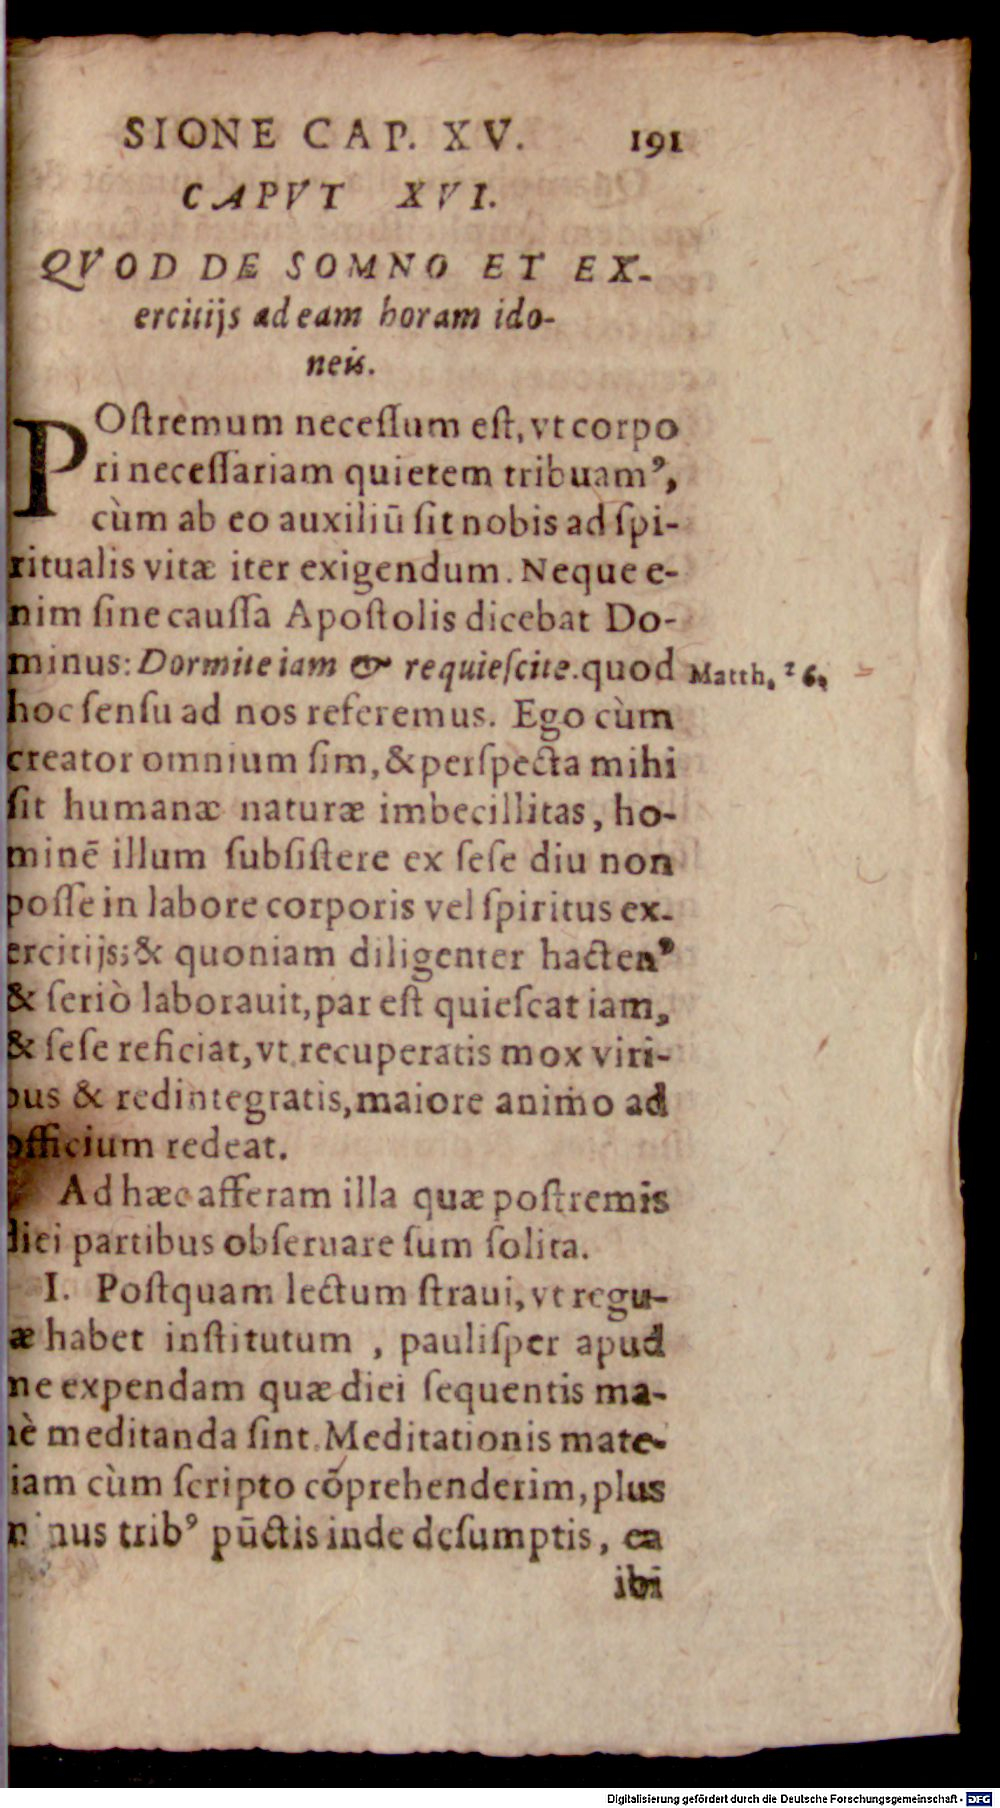 SIONE CAP. XV. 191
CAPVT XVI.
QVOD DE SOMNO ET EX-
ercitijs ad eam horam ido-
neis.
POſtremum neceſſum eſt, vt corpo
ri neceſſariam quietem tribuamꝰ,
cùm ab eo auxiliū ſit nobis ad ſpi-
ritualis vitæ iter exigendum. Neque e-
nim ſine cauſſa Apoſtolis dicebat Do-
minus: Dormite iam & requieſcite. quod Matth. 26.
hoc ſenſu ad nos referemus. Ego cùm
creator omnium ſim, & perſpecta mihi
ſit humanæ naturæ imbecillitas, ho-
minē illum ſubſiſtere ex ſeſe diu non
poſſe in labore corporis vel ſpiritus ex-
ercitijs; & quoniam diligenter hactenꝰ
& ſeriò laborauit, par eſt quieſcat iam,
& ſeſe reficiat, vt recuperatis mox viri-
bus & redintegratis, maiore animo ad
officium redeat.
Ad hæc afferam illa quæ poſtremis
diei partibus obſeruare ſum ſolita.
I. Poſtquam lectum ſtraui, vt regu-
æ habet inſtitutum, pauliſper apud
me expendam quæ diei ſequentis ma-
nè meditanda ſint. Meditationis mate-
iam cùm ſcripto cōprehenderim, plus
minus tribꝰ pūctis inde deſumptis, ea
ibi
Digitalisierung gefördert durch die Deutsche Forschungsgemeinschaft - DFG